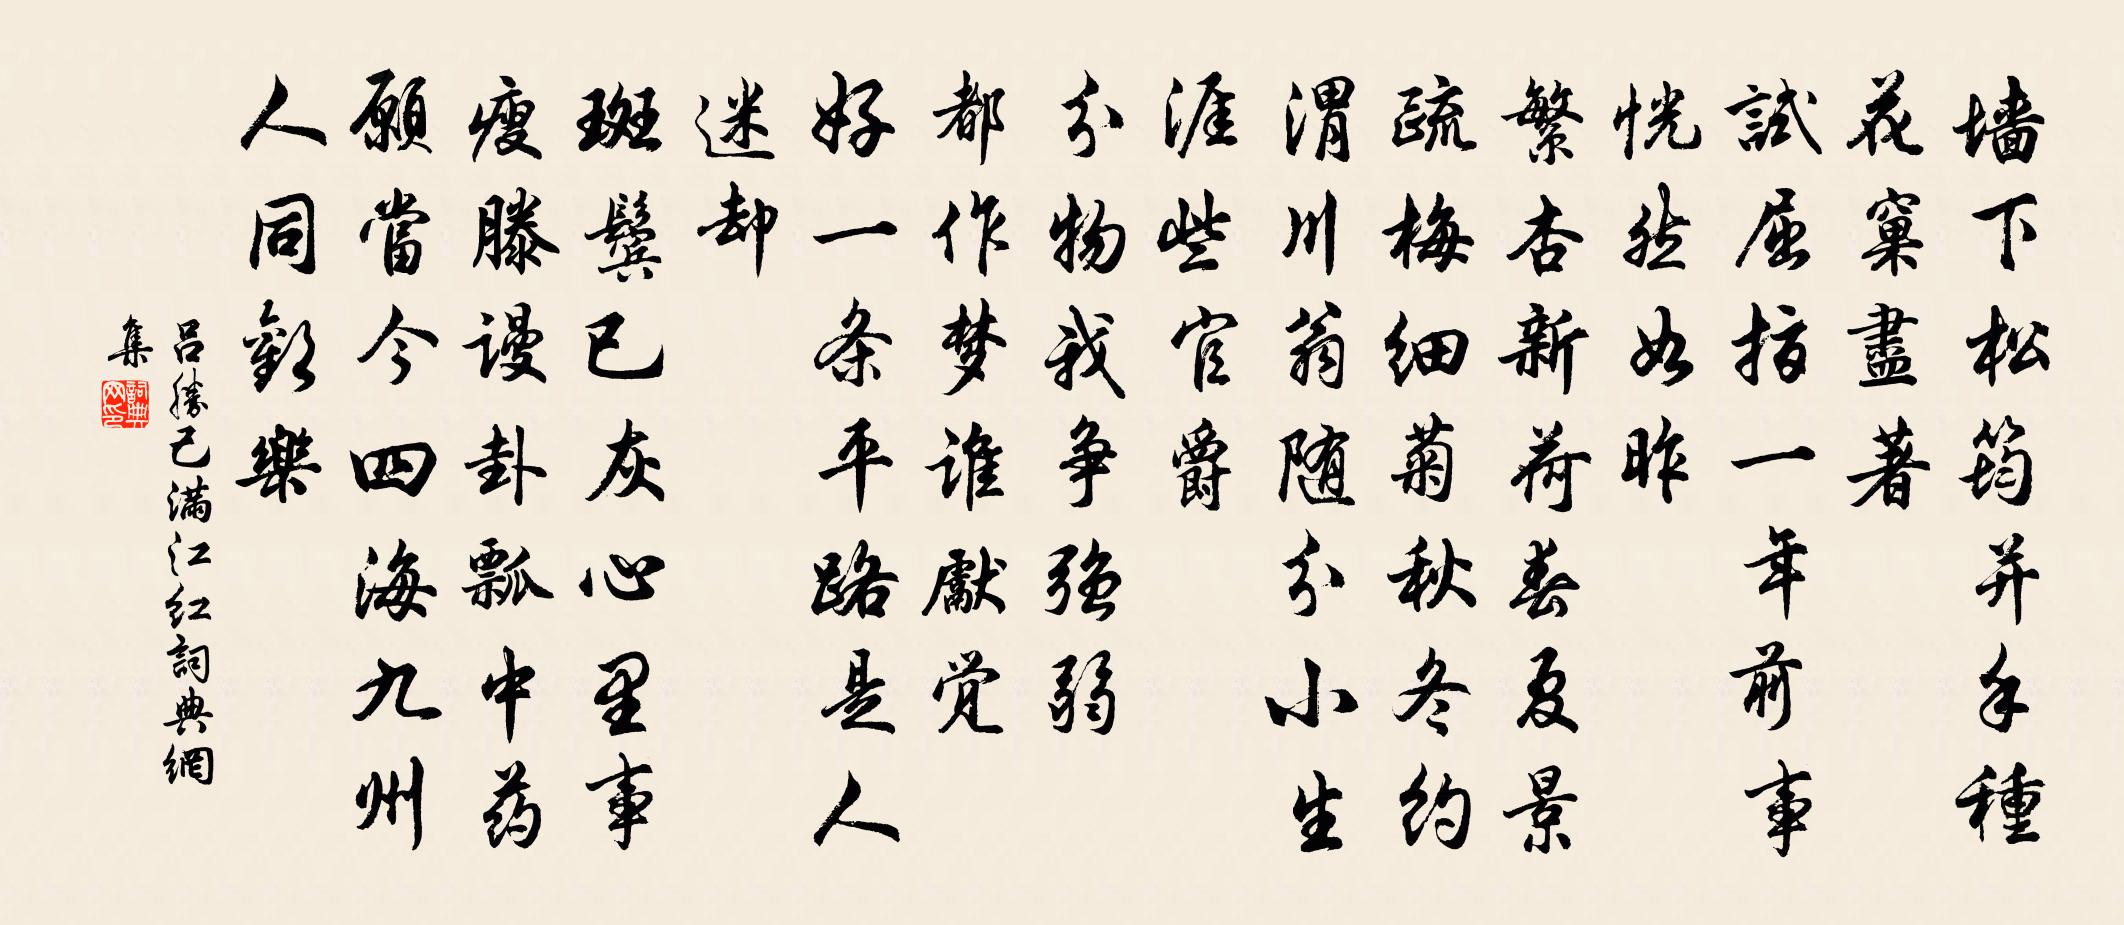 墙下松筠并手種
花窠盡著
試屈指一年前事
恍然如昨
繁杏新荷春夏景
疏梅细菊秋冬约
渭川翁随分小生
涯些官爵
分物我争强弱
都作梦谁獻觉
好一条平路是人
迷却
斑鬓已灰心里事
瘦滕谩卦瓢中药
願當今四海九州
人同歡樂
吕勝己满江红詞典網
集
詞典
网印